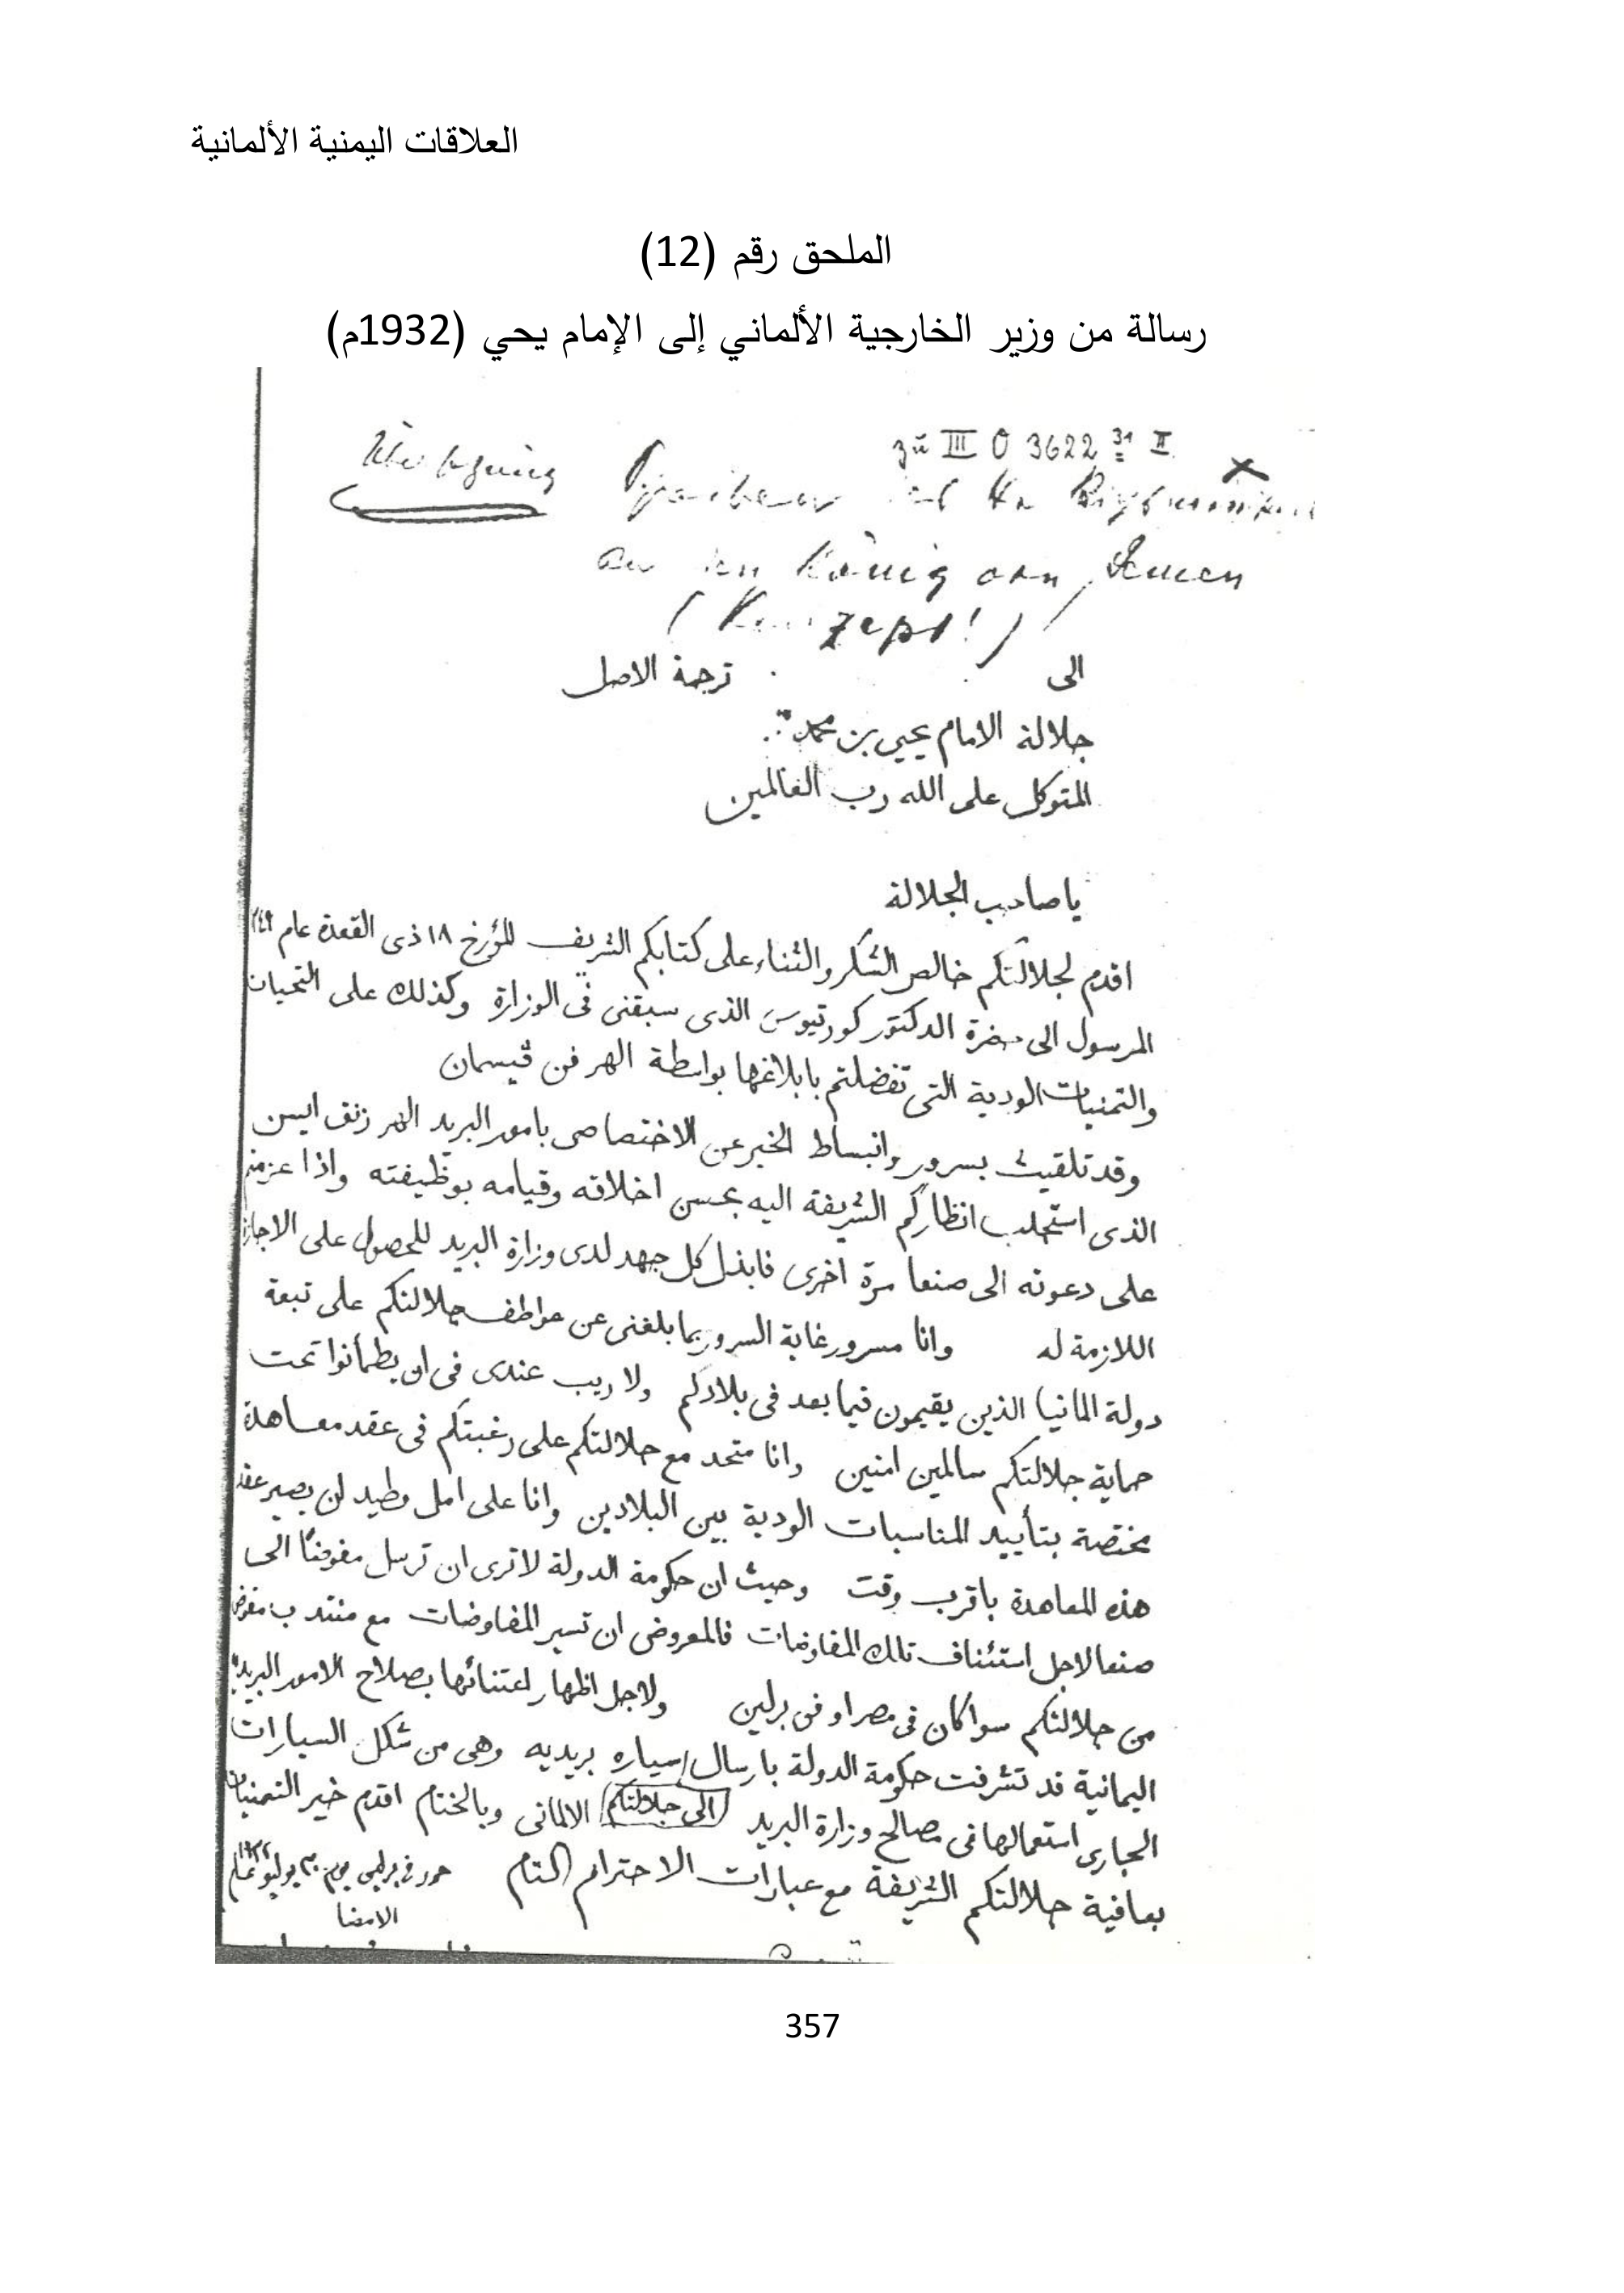 العلاقات اليمنية الألمانية
الملحق رقم (12)
رسالة من وزير الخارجية الألماني إلى الإمام يحي (1932م)
zu III O 3622 31 II
an König von Jemen
الى ترجمة الاصل
جلالة الامام يحيى بن محمد
المتوكل على الله رب العالمين
يا صاحب الجلالة
اقدم لجلالتكم خالص الشكر والثناء على كتابكم الشريف المؤرخ ١٨ ذى القعدة عام
المرسول الى حضرة الدكتور كورتيوس الذى سبقنى فى الوزارة وكذلك على التحيات
والتمنيات الودية التى تفضلتم بابلاغها بواسطة الهر فن ڤيسمان
وقد تلقيت بسرور وانبساط الخبر عن الاختصاصى بامور البريد الهر ايسن
الذى استجلب انظاركم الشريفة اليه بحسن اخلاقه وقيامه بوظيفته واذا عزمتم
على دعوته الى صنعا مرة اخرى فابذل كل جهد لدى وزارة البريد للحصول على الاجازة
اللازمة له وانا مسرور غاية السرور بما بلغنى عن عواطف جلالتكم على تبعة
دولة المانيا الذين يقيمون فيما بعد فى بلادكم ولا ريب عندى فى ان يطمأنوا تحت
حماية جلالتكم سالمين امنين وانا متحد مع جلالتكم على رغبتكم فى عقد معاهدة
مختصة بتأييد المناسبات الودية بين البلادين وانا على امل وطيد لن يصير عقد
هذه المعاهدة باقرب وقت وحيث ان حكومة الدولة لا ترى ان ترسل مفوضًا الى
صنعا لاجل استئناف تلك المفاوضات فالمعروض ان تسير المفاوضات مع منتدب مفوض
من جلالتكم سوا كان فى مصر او فى برلين ولاجل اظهار اعتنائها بصلاح الامور البريدية
اليمانية قد تشرفت حكومة الدولة بارسال سياره بريديه وهى من شكل السيارات
الجارى استعمالها فى مصالح وزارة البريد الى جلالتكم الالمانى وبالختام اقدم خير التمنيات
بعافية جلالتكم الشريفة مع عبارات الاحترام التام حرر فى برلين يوم يوليو
الامضا
357